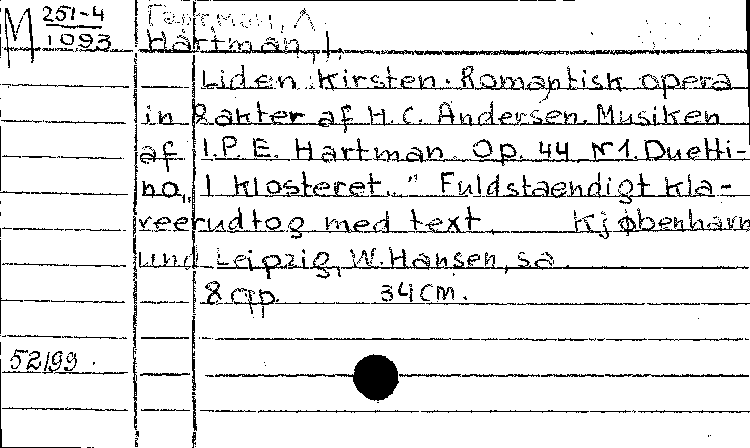 M 251-4
1093
Гартман, Л.
Hartman, I.
Liden Kirsten. Romantisk opera
in 2 akter af H. C. Andersen. Musiken
af I. P. E. Hartman. Op. 44 N 1. Duetti-
no „I Klosteret." Fuldstaendigt kla-
veerudtog med text. Kjøbenhavn
und Leipzig, W. Hansen, sa.
8 стр. 34 cm.
52199.